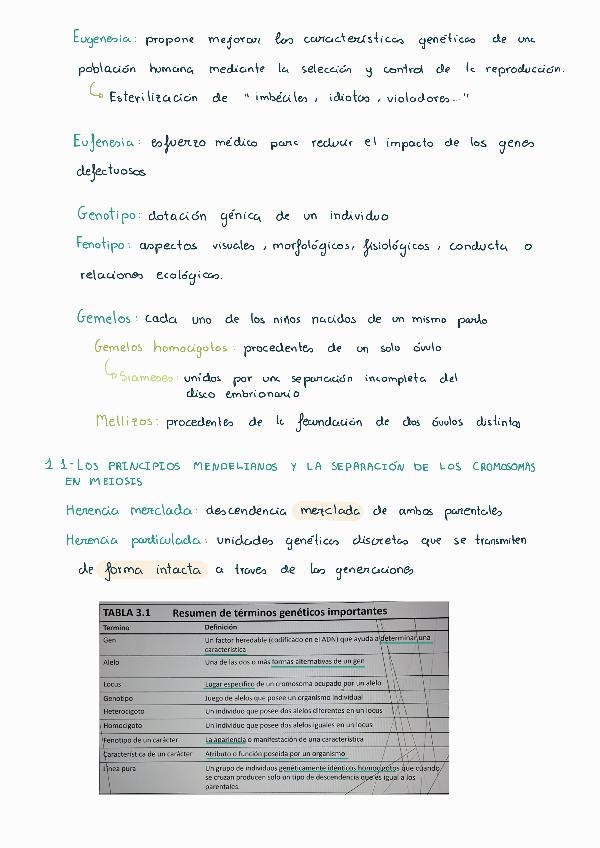 Eugenesia: propone mejorar las características genéticas de una
población humana mediante la selección y control de la reproducción.
Esterilización de "imbéciles, idiotas, violadores..."
Eufenesia: esfuerzo médico para reducir el impacto de los genes
defectuosos
Genotipo: dotación génica de un individuo
Fenotipo: aspectos visuales, morfológicos, fisiológicos, conducta o
relaciones ecológicas.
Gemelos: cada uno de los niños nacidos de un mismo parto
Gemelos homocigotos: procedentes de un solo óvulo
Siameses: unidos por una separación incompleta del
disco embrionario
Mellizos: procedentes de la fecundación de dos óvulos distintos
1.1-LOS PRINCIPIOS MENDELIANOS Y LA SEPARACIÓN DE LOS CROMOSOMAS
EN MEIOSIS
Herencia mezclada: descendencia mezclada de ambos parentales
Herencia particulada: unidades genéticas discretas que se transmiten
de forma intacta a traves de las generaciones
TABLA 3.1 Resumen de términos genéticos importantes
Termino Definición
Gen Un factor heredable (codificado en el ADN) que ayuda a determinar una
característica
Alelo Una de las dos o más formas alternativas de un gen
Locus Lugar específico de un cromosoma ocupado por un alelo
Genotipo Juego de alelos que posee un organismo individual
Heterocigoto Un individuo que posee dos alelos diferentes en un locus
Homocigoto Un individuo que posee dos alelos iguales en un locus
Fenotipo de un carácter La apariencia o manifestación de una característica
Característica de un carácter Atributo o función poseida por un organismo
Línea pura Un grupo de individuos genéticamente idénticos homocigotos que cuando
se cruzan producen solo un tipo de descendencia que es igual a los
parentales.